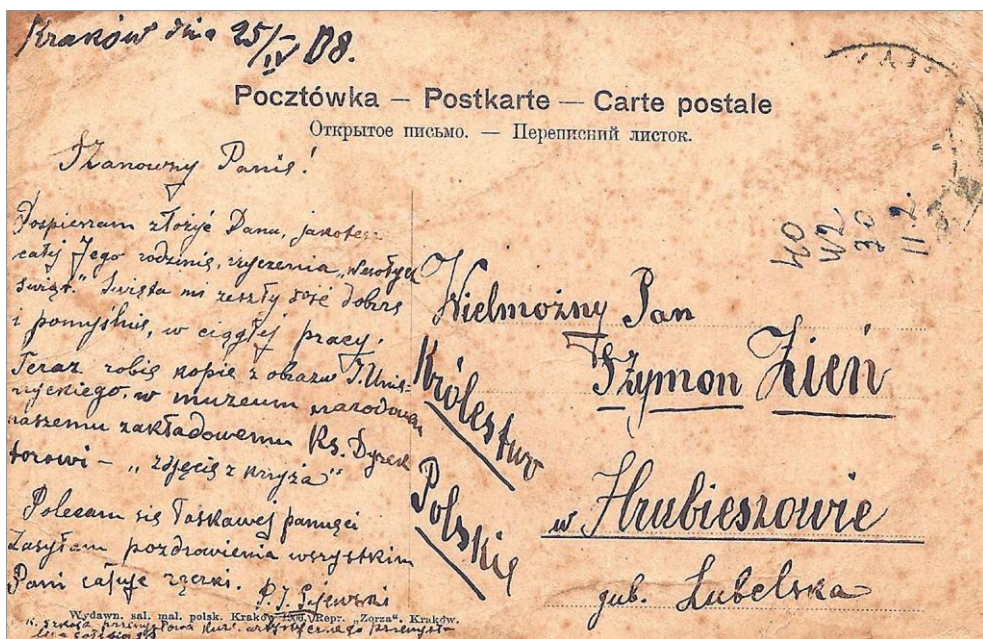 Kraków dnia 25/IV 08.
Pocztówka — Postkarte — Carte postale
Открытое письмо. — Переписний листок.
Szanowny Panie!
Pospieszam złożyć Panu, jakoteż
całej Jego rodzinie, życzenia „Wesołych
świąt." Święta mi zeszły dość dobrze
i pomyślnie, w ciągłej pracy.
Teraz robię kopie z obrazu J. Unie-
rzyckiego. w muzeum narodowem
naszemu zakładowemu Ks. Dyrek
torowi — „zdjęcie z krzyża"
Polecam się łaskawej pamięci
Zasyłam pozdrowienia wszystkim
Pani całuje rączki.
Wielmożny Pan
Szymon Zień
w Hrubieszowie
gub. Lubelska
Królestwo
Polskie
40
42
30
11.2.
Wydawn. sal. mal. polsk. Kraków 1906. Repr. „Zorza". Kraków.